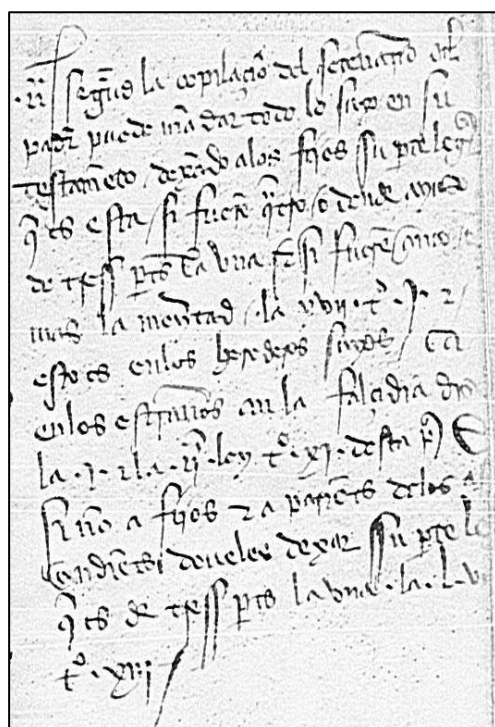 ·ii· segũd la copilaciõ del setenario el
padr̃ puede mãdar todo lo suyo en su
testamẽto dexãdo a los fijos su parte leg
q̃ es esta si fuerẽ q̃tro o dende ayuso
de tres p̃tes la vna si fuerẽ cinco o
mas la meytad la xvii tº · j ·
esto es en los herederos suyos ca
en los estr̃años an la falçidia
la · j · z la · ii · ley tº · xi · desta p̃
si nõ a fijos z a pariẽtes de los
cendiẽtes deueles dexar su p̃te le
q̃ es de tres p̃tes la vna · la · l · v
tº · xiii